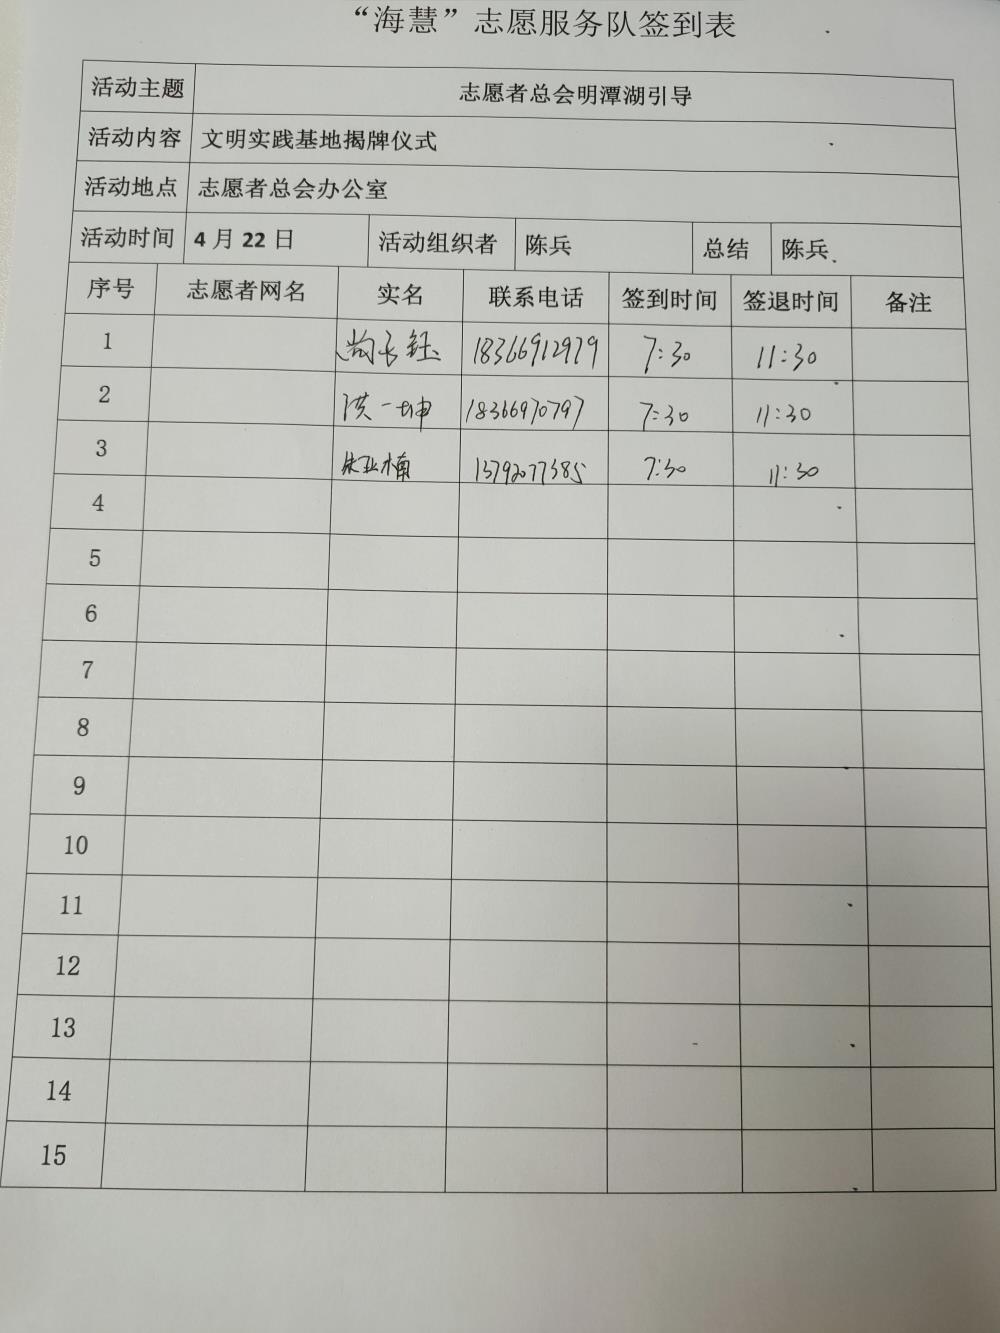 “海慧”志愿服务队签到表
活动主题 志愿者总会明潭湖引导
活动内容 文明实践基地揭牌仪式
活动地点 志愿者总会办公室
活动时间 4 月 22 日 活动组织者 陈兵 总结 陈兵
序号 志愿者网名 实名 联系电话 签到时间 签退时间 备注
1 尚长钰 18366912979 7:30 11:30
2 洪一坤 18366970797 7:30 11:30
3 朱亚楠 13792077385 7:30 11:30
4
5
6
7
8
9
10
11
12
13
14
15